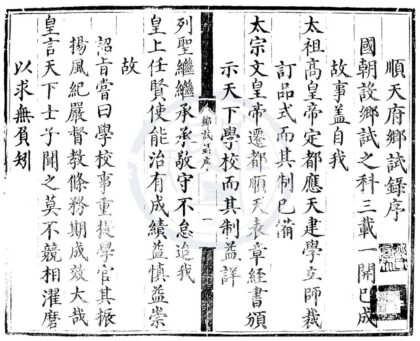 順天府鄉試錄序
國朝設鄉試之科三載一開已成
故事葢自我
太祖高皇帝定都應天建學立師裁
訂品式而其制已備
太宗文皇帝遷都順天表章經書頒
示天下學校而其制益詳
鄉試錄序
一
列聖繼繼承承敬守不怠迨我
皇上任賢使能治有成績益慎益崇
故
詔旨嘗曰學校事重提學官其振
揚風紀嚴督教條務期成效大哉
皇言天下士子聞之莫不競相濯磨
以求無負矧